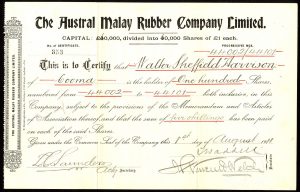 The Austral Malay Rubber Company Limited.
CAPITAL: £50,000, divided into 50,000 Shares of £1 each.
No. of CERTIFICATE. PROGRESSIVE NOS.
353 44002/44101
This is to Certify that Walter Sheffield Harrison
of Cooma is the holder of One hundred Shares,
numbered from 44002 to 44101 both inclusive, in this
Company, subject to the provisions of the Memorandum and Articles
of Association thereof, and that the sum of five shillings has been paid
on each of the said Shares.
Given under the Common Seal of the Company this 1st day of August
Secretary
THE AUSTRAL MALAY RUBBER COMPANY LIMITED